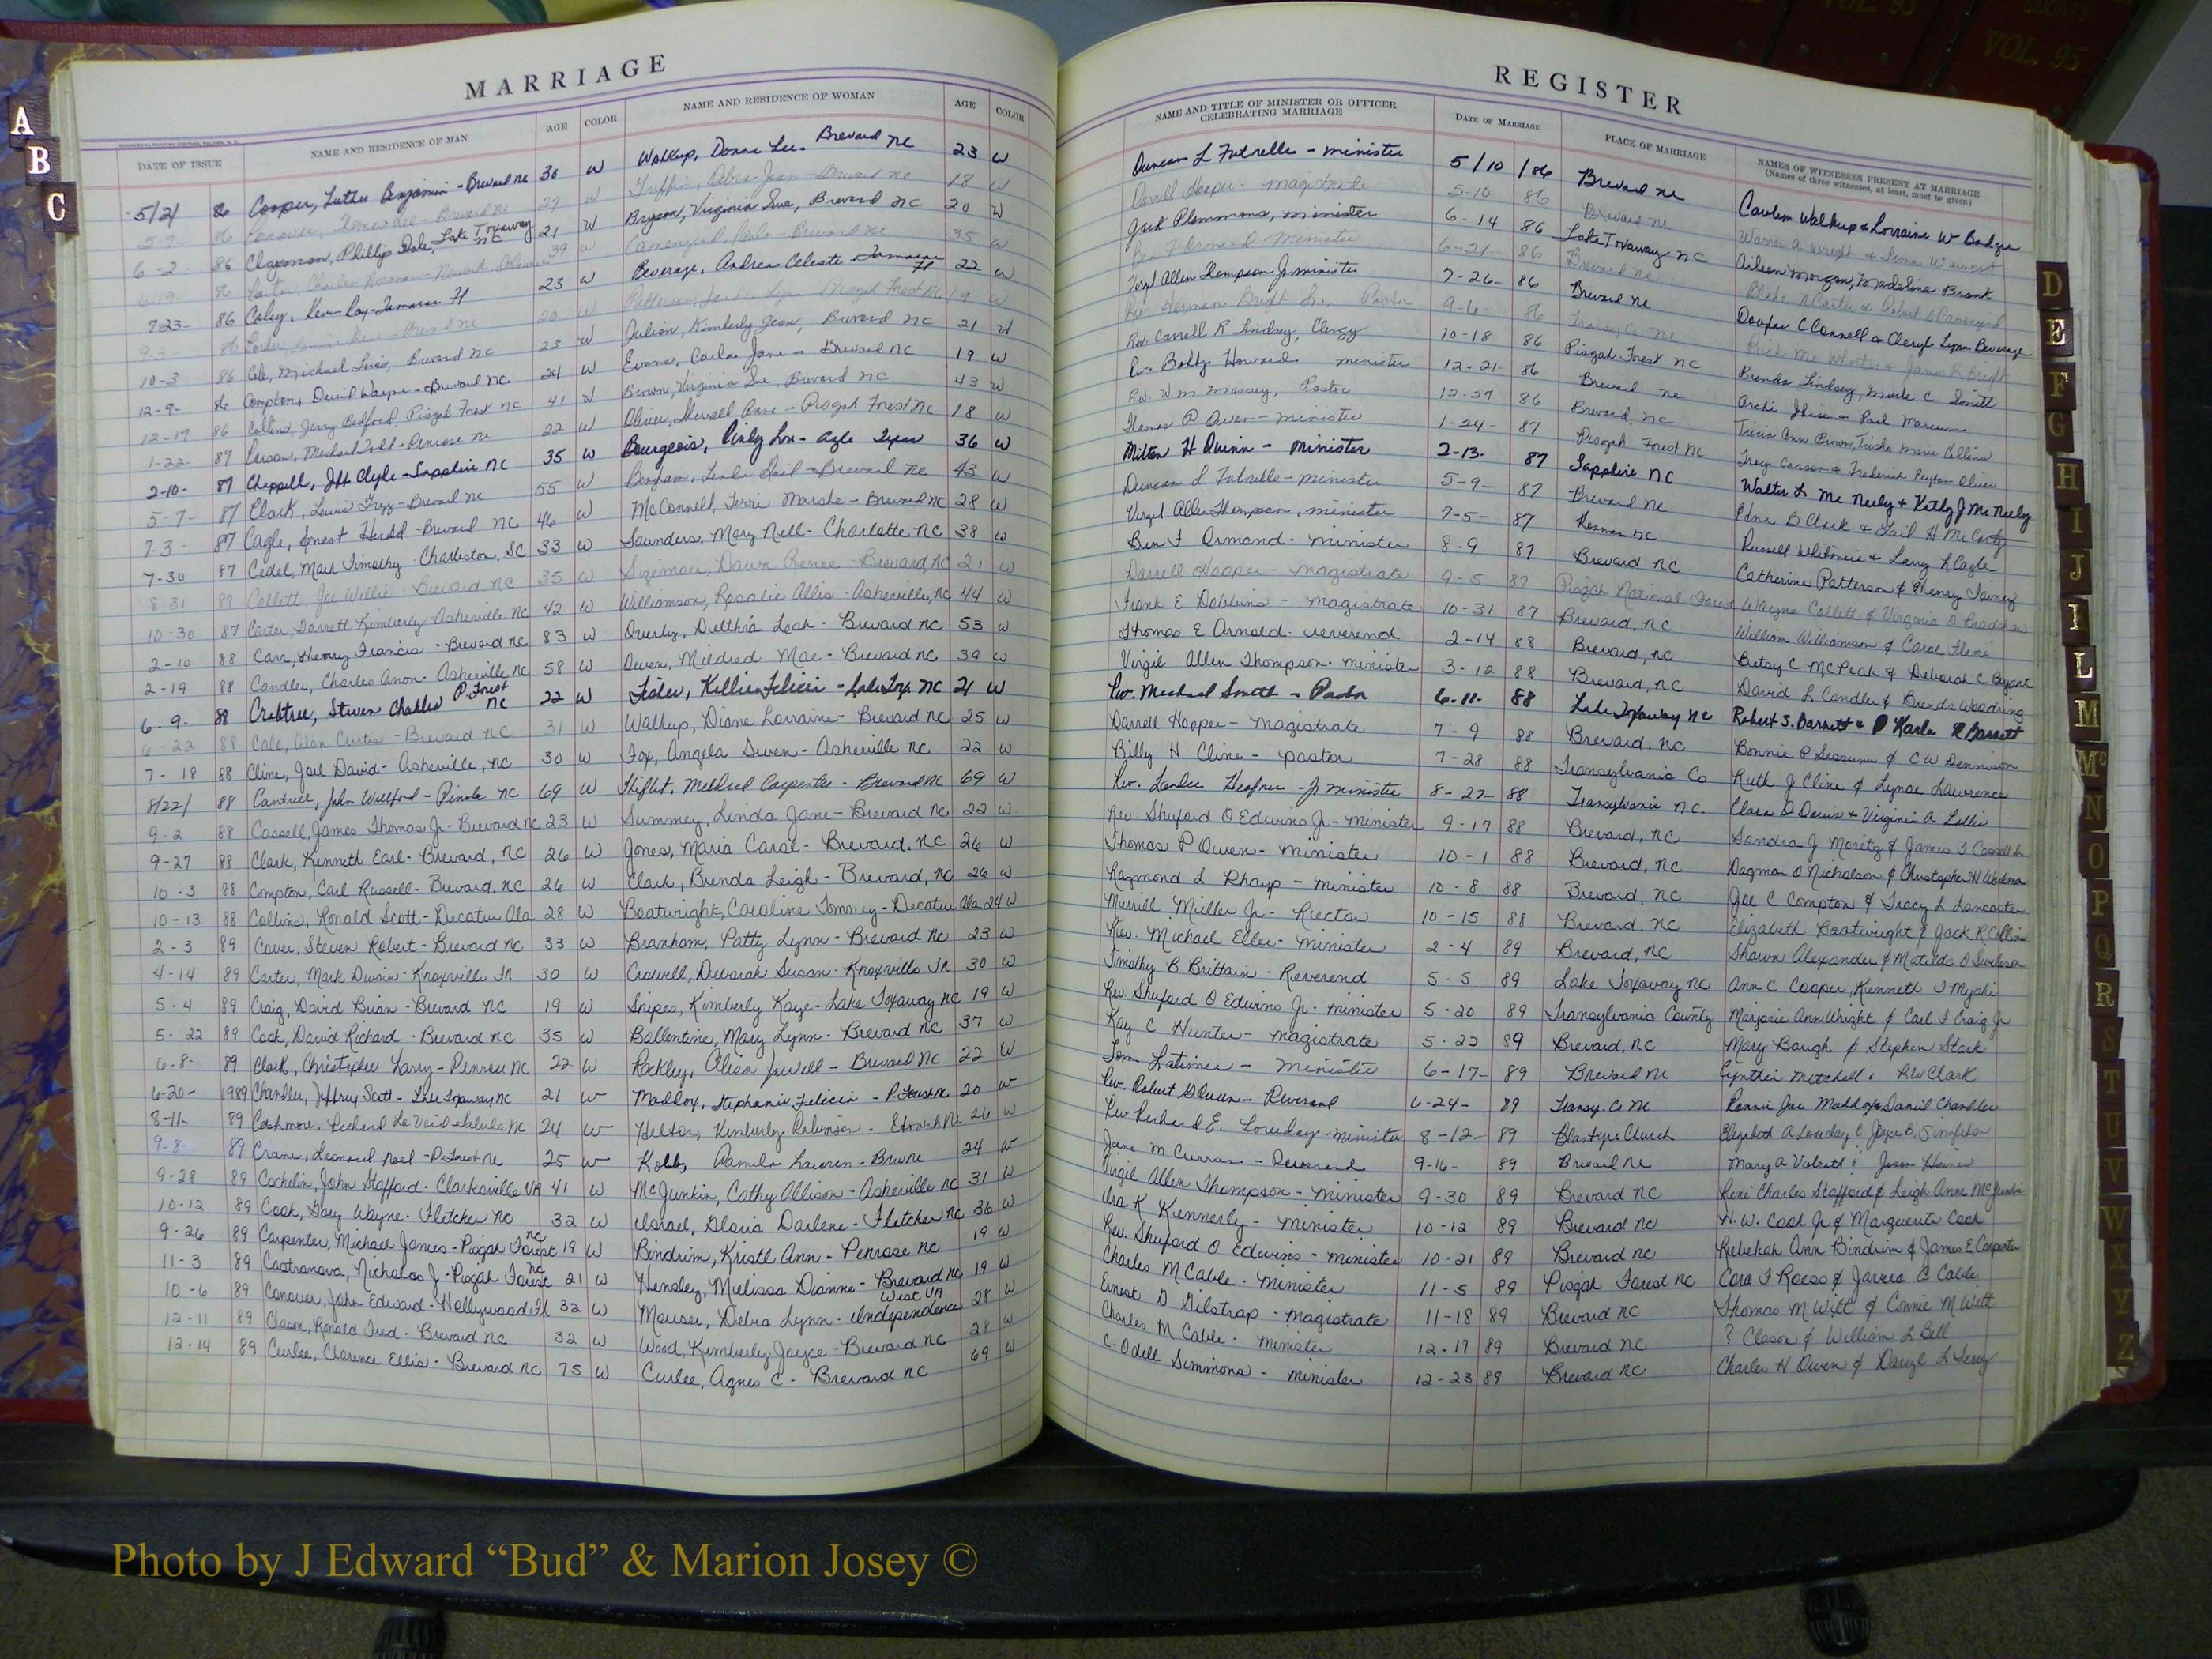 VOL. 93
COUNTY
VOL. 95
A
B
C
MARRIAGE
DATE OF ISSUE NAME AND RESIDENCE OF MAN AGE COLOR NAME AND RESIDENCE OF WOMAN AGE COLOR
5/2/ 86 Cooper, Luther Benjamin - Brevard NC 30 W Walkup, Donna Lee - Brevard NC 23 W
86 27 W Brevard NC 18 W
6-2 86 Chapman, Phillip Dale, Lake Toxaway NC 21 W Bryson, Virginia Sue, Brevard NC 20 W
6-19 86 Carter, Charles Norman 39 W Brevard NC 35 W
7 23- 86 Ray - Tamarac Fl 23 W Beverage, Andrea Celeste - Tamarac Fl 22 W
9-3- 86 Brevard NC 20 W Patterson, Lynn - Pisgah Forest NC 19 W
10-3 86 Cole, Michael Louis, Brevard NC 23 W Julian, Kimberly Jean, Brevard NC 21 W
12-9- 86 Compton, David Wayne - Brevard NC 24 W Evans, Carla Jane - Brevard NC 19 W
12-17 86 Collins, Jerry Bedford, Pisgah Forest NC 41 W Brown, Virginia Sue, Brevard NC 43 W
1-22- 87 Carson, Michael Todd - Penrose NC 22 W Oliver, Sherrell Anne - Pisgah Forest NC 18 W
2-10- 87 Chappell, Jeff Clyde - Sapphire NC 35 W Bourgeois, Cindy Lou - Azle Texas 36 W
5-7- 87 Clark, Brevard NC 55 W Gail - Brevard NC 43 W
7-3 87 Cagle, Ernest Harold - Brevard NC 46 W McConnell, Terri Marsha - Brevard NC 28 W
7-30 87 Cedel, Mark Timothy - Charleston, SC 33 W Saunders, Mary Nell - Charlotte NC 38 W
8-31 87 Collett, Joe Willie - Brevard NC 35 W Sizemore, Dawn Renee - Brevard, NC 21 W
10-30 87 Carter, Darrett Kimberly - Asheville NC 42 W Williamson, Rosalie Allis - Asheville, NC 44 W
2-10 88 Carr, Henry Francis - Brevard NC 83 W Overby, Delthia Leah - Brevard NC 53 W
2-19 88 Candler, Charles Anon - Asheville NC 58 W Owen, Mildred Mae - Brevard NC 39 W
6-9- 88 Crabtree, Steven Charles P. Forest NC 22 W Fisher, Kellie Felicia - Lake Tox. NC 21 W
6-22 88 Cole, Alan Curtis - Brevard NC 31 W Walkup, Diane Lorraine - Brevard NC 25 W
7-18 88 Cline, Joel David - Asheville, NC 30 W Fox, Angela Gwen - Asheville NC 22 W
8/22/ 88 Cantrell, John Willford - Pinole NC 69 W Shiflet, Mildred Carpenter - Brevard NC 69 W
9-2 88 Cassell, James Thomas Jr - Brevard NC 23 W Summey, Linda Jane - Brevard NC 22 W
9-27 88 Clark, Kenneth Earl - Brevard, NC 26 W Jones, Maria Carol - Brevard, NC 26 W
10-3 88 Compton, Carl Russell - Brevard, NC 26 W Clark, Brenda Leigh - Brevard, NC 26 W
10-13 88 Collins, Ronald Scott - Decatur Ala 28 W Boatwright, Caroline Tommey - Decatur Ala 24 W
2-3 89 Cover, Steven Robert - Brevard NC 33 W Branham, Patty Lynn - Brevard NC 23 W
4-14 89 Carter, Mark Dwain - Knoxville TN 30 W Crowell, Deborah Susan - Knoxville TN 30 W
5-4 89 Craig, David Brian - Brevard NC 19 W Snipes, Kimberly Kaye - Lake Toxaway NC 19 W
5-22 89 Cook, David Richard - Brevard NC 35 W Ballentine, Mary Lynn - Brevard NC 37 W
6-8- 89 Clark, Christopher Larry - Penrose NC 22 W Rackley, Alisa Jewell - Brevard NC 22 W
6-20- 1989 Chandler, Jeffrey Scott - Lake Toxaway NC 21 W Maddox, Stephanie Felicia - P. Forest NC 20 W
8-11- 89 Cashmore, Richard La Void - Saluda NC 24 W Helton, Kimberly Robinson - Etowah NC 26 W
9-8- 89 Crane, Leonard Noel - P. Forest NC 25 W Kobb, Pamela Lauren - Brev NC 24 W
9-28 89 Cochelin, John Stafford - Clarksville VA 41 W McJunkin, Cathy Allison - Asheville NC 31 W
10-12 89 Cook, Gary Wayne - Fletcher NC 32 W Israel, Gloria Darlene - Fletcher NC 36 W
9-26 89 Carpenter, Michael James - Pisgah Forest NC 19 W Bindrim, Kristl Ann - Penrose NC 19 W
11-3 89 Castranova, Nicholas J - Pisgah Forest NC 21 W Hensley, Melissa Dianne - Brevard NC 19 W
10-6 89 Conover, John Edward - Hollywood Fl 32 W Mouser, Debra Lynn - Independence West VA 28 W
12-11 89 Clason, Ronald Fred - Brevard NC 32 W Wood, Kimberly Jayce - Brevard NC 28 W
12-14 89 Curlee, Clarence Ellis - Brevard NC 75 W Curlee, Agnes C - Brevard NC 69 W
REGISTER
NAME AND TITLE OF MINISTER OR OFFICER CELEBRATING MARRIAGE DATE OF MARRIAGE PLACE OF MARRIAGE NAMES OF WITNESSES PRESENT AT MARRIAGE
(Names of three witnesses, at least, must be given)
Duncan L Futrelle - minister 5/10/86 Brevard NC Walkup & Lorraine W
Darrell Hooper - magistrate 5-10 86 Brevard NC Warren A Wright &
Jack Plemmons, minister 6-14 86 Lake Toxaway NC Aileen Morgan, Madeline Brank
minister 6-21- 86 Brevard NC
Virgil Allen Thompson Jr minister 7-26- 86 Brevard NC C Connell & Cheryl Lynn Beverage
Rev Herman Pastor 9-6- 86 Transy Co NC
Rev. Carroll R Lindsey, Clergy 10-18 86 Pisgah Forest NC Brenda Lindsey, Mark C Smith
Rev. Bobby Howard minister 12-21- 86 Brevard NC
Rev Wm Massey, Pastor 12-27 86 Brevard, NC Tricia Ann Brown, Trisha Marie Collins
Thomas P Owen - minister 1-24- 87 Pisgah Forest NC Troy Carson & Frederick Peyton Oliver
Milton H Quinn - minister 2-13- 87 Sapphire NC Walter L McNeely & Kathy J McNeely
Duncan L Futrelle - minister 5-9- 87 Brevard NC Edna B Clark & Gail H McCarty
Virgil Allen Thompson, minister 7-5- 87 Rosman NC Russell Whitmire & Larry L Cagle
Ben F Ormand - minister 8-9 87 Brevard NC Catherine Patterson & Henry
Darrell Hooper - magistrate 9-5 87 Pisgah National Forest Wayne Collett & Virginia D Bradshaw
Frank E Dobbins - magistrate 10-31 87 Brevard, NC William Williamson & Carol
Thomas E Arnold - reverend 2-14 88 Brevard, NC Betsy C McPeak & Deborah C Bryant
Virgil Allen Thompson - minister 3-12 88 Brevard, NC David L Candler & Brenda Woodring
Rev. Michael Smith - Pastor 6-11- 88 Lake Toxaway NC Robert S. Barnett & Karla R Barnett
Darrell Hooper - magistrate 7-9 88 Brevard, NC Bonnie P Sessums & C W Dennison
Billy H Cline - pastor 7-28 88 Transylvania Co Ruth J Cline & Lynae Lawrence
Rev. Jr minister 8-22- 88 Transylvania NC. Clara D Davis & Virginia A
Rev Shuford O Edwins Jr - minister 9-17 88 Brevard, NC Sandra J Moritz & James T Cassell Sr
Thomas P Owen - minister 10-1 88 Brevard, NC Dagmar O Nicholson & Christopher H Workman
Raymond L Tharp - minister 10-8 88 Brevard, NC Joe C Compton & Tracy L Lancaster
Merrill Miller Jr - Rector 10-15 88 Brevard, NC Elizabeth Boatwright & Jack R Collins
Rev. Michael Eller - minister 2-4 89 Brevard, NC Shawn Alexander & Matilda O
Timothy B Brittain - Reverend 5-5 89 Lake Toxaway NC Ann C Cooper, Kenneth J
Rev. Shuford O Edwins Jr - minister 5-20 89 Transylvania County Marjorie Ann Wright & Carl F Craig Jr
Kay C Hunter - magistrate 5-22 89 Brevard, NC Mary Baugh & Stephen Stark
Tom Latimer - minister 6-17- 89 Brevard NC Cynthia Mitchell & RW Clark
Rev. Robert Reverend 6-24- 89 Transy. Co NC Ronnie Joe Maddox & Daniel Chandler
Rev Richard E. Loveday - minister 8-12- 89 Blantyre Church Elizabeth A Loveday & Joyce B. Singleton
Jane M Curran - Reverend 9-16- 89 Brevard NC Mary A & Jason
Virgil Allen Thompson - minister 9-30 89 Brevard NC René Charles Stafford & Leigh Anne McJunkin
Ira K Kennerly - minister 10-12 89 Brevard NC H. W. Cook Jr & Marguerite Cook
Rev. Shuford O Edwins - minister 10-21 89 Brevard NC Rebekah Ann Bindrim & James E Carpenter
Charles M Cable - minister 11-5 89 Pisgah Forest NC Cora F & C Cable
Ernest D Gilstrap - magistrate 11-18 89 Brevard NC Thomas M Witt & Connie M Witt
Charles M Cable - minister 12-17 89 Brevard NC ? Clason & William L Bell
C. Odell Simmons - minister 12-23 89 Brevard NC Charles H Owen & Daryl L Terry
D
E
F
G
H
I
J
I
L
M
Mc
N
O
P
Q
R
S
T
U
V
W
X
Y
Z
Photo by J Edward “Bud” & Marion Josey ©